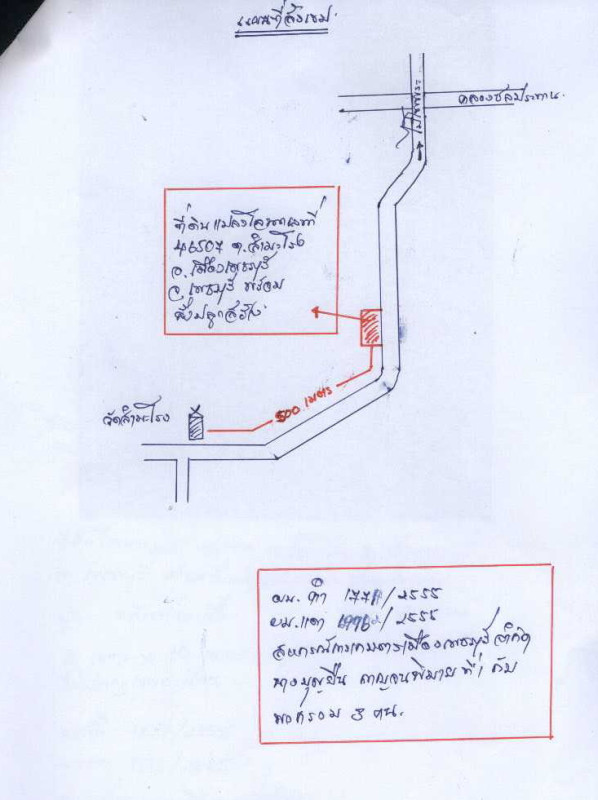 แผนที่สังเขป
คลองชลประทาน
ที่ดินแปลงโฉนดเลขที่
46507 ต.สำมะโรง
อ.เมืองเพชรบุรี
จ.เพชรบุรี พร้อม
สิ่งปลูกสร้าง
500 เมตร
วัดสำมะโรง
ผบ. ดำ /2555
ผบ. แดง /2555
สหกรณ์การเกษตรเมืองเพชรบุรี จำกัด
นางบุญยืน ที่ 1 กับ
พวกรวม 3 คน.